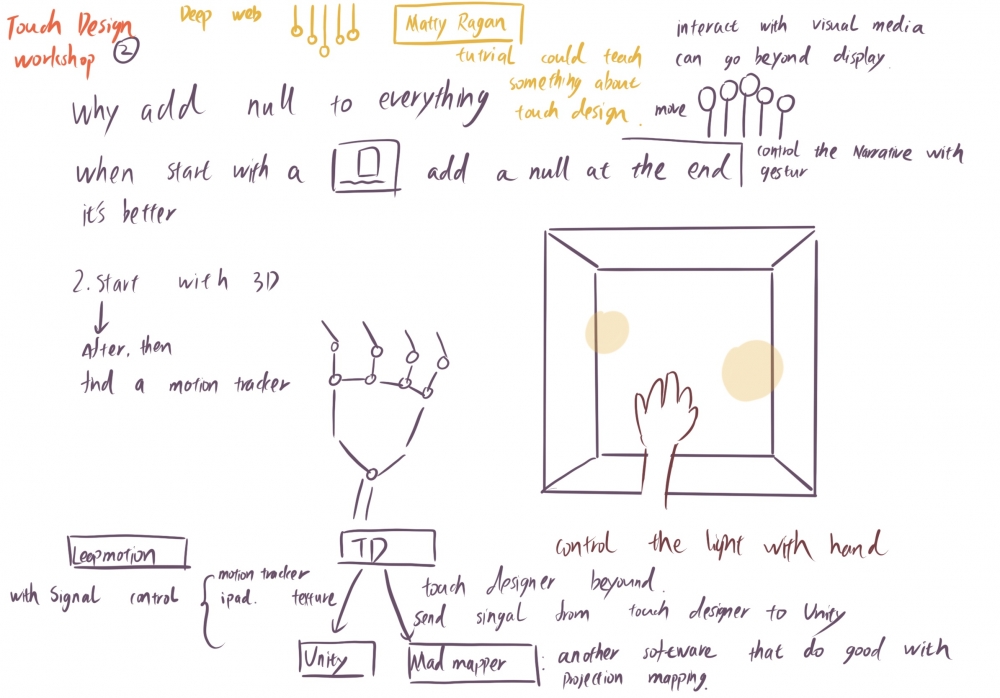 Touch Design
workshop ②
Deep web
Matty Ragan
tutrial could teach
something about
touch design.
interact with visual media
can go beyond display.
move
control the Narrative with
gestur
why add null to everything
when start with a
add a null at the end
it's better
2. Start with 3D
After, then
find a motion tracker
Leapmotion
with Signal control
motion tracker
ipad. texture
TD
touch designer beyound.
send singal from touch designer to Unity
Unity
Mad mapper
: another software that do good with
projection mapping.
control the light with hand